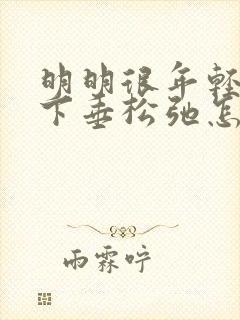 明明很年轻
下垂松弛怎
雨霖咛